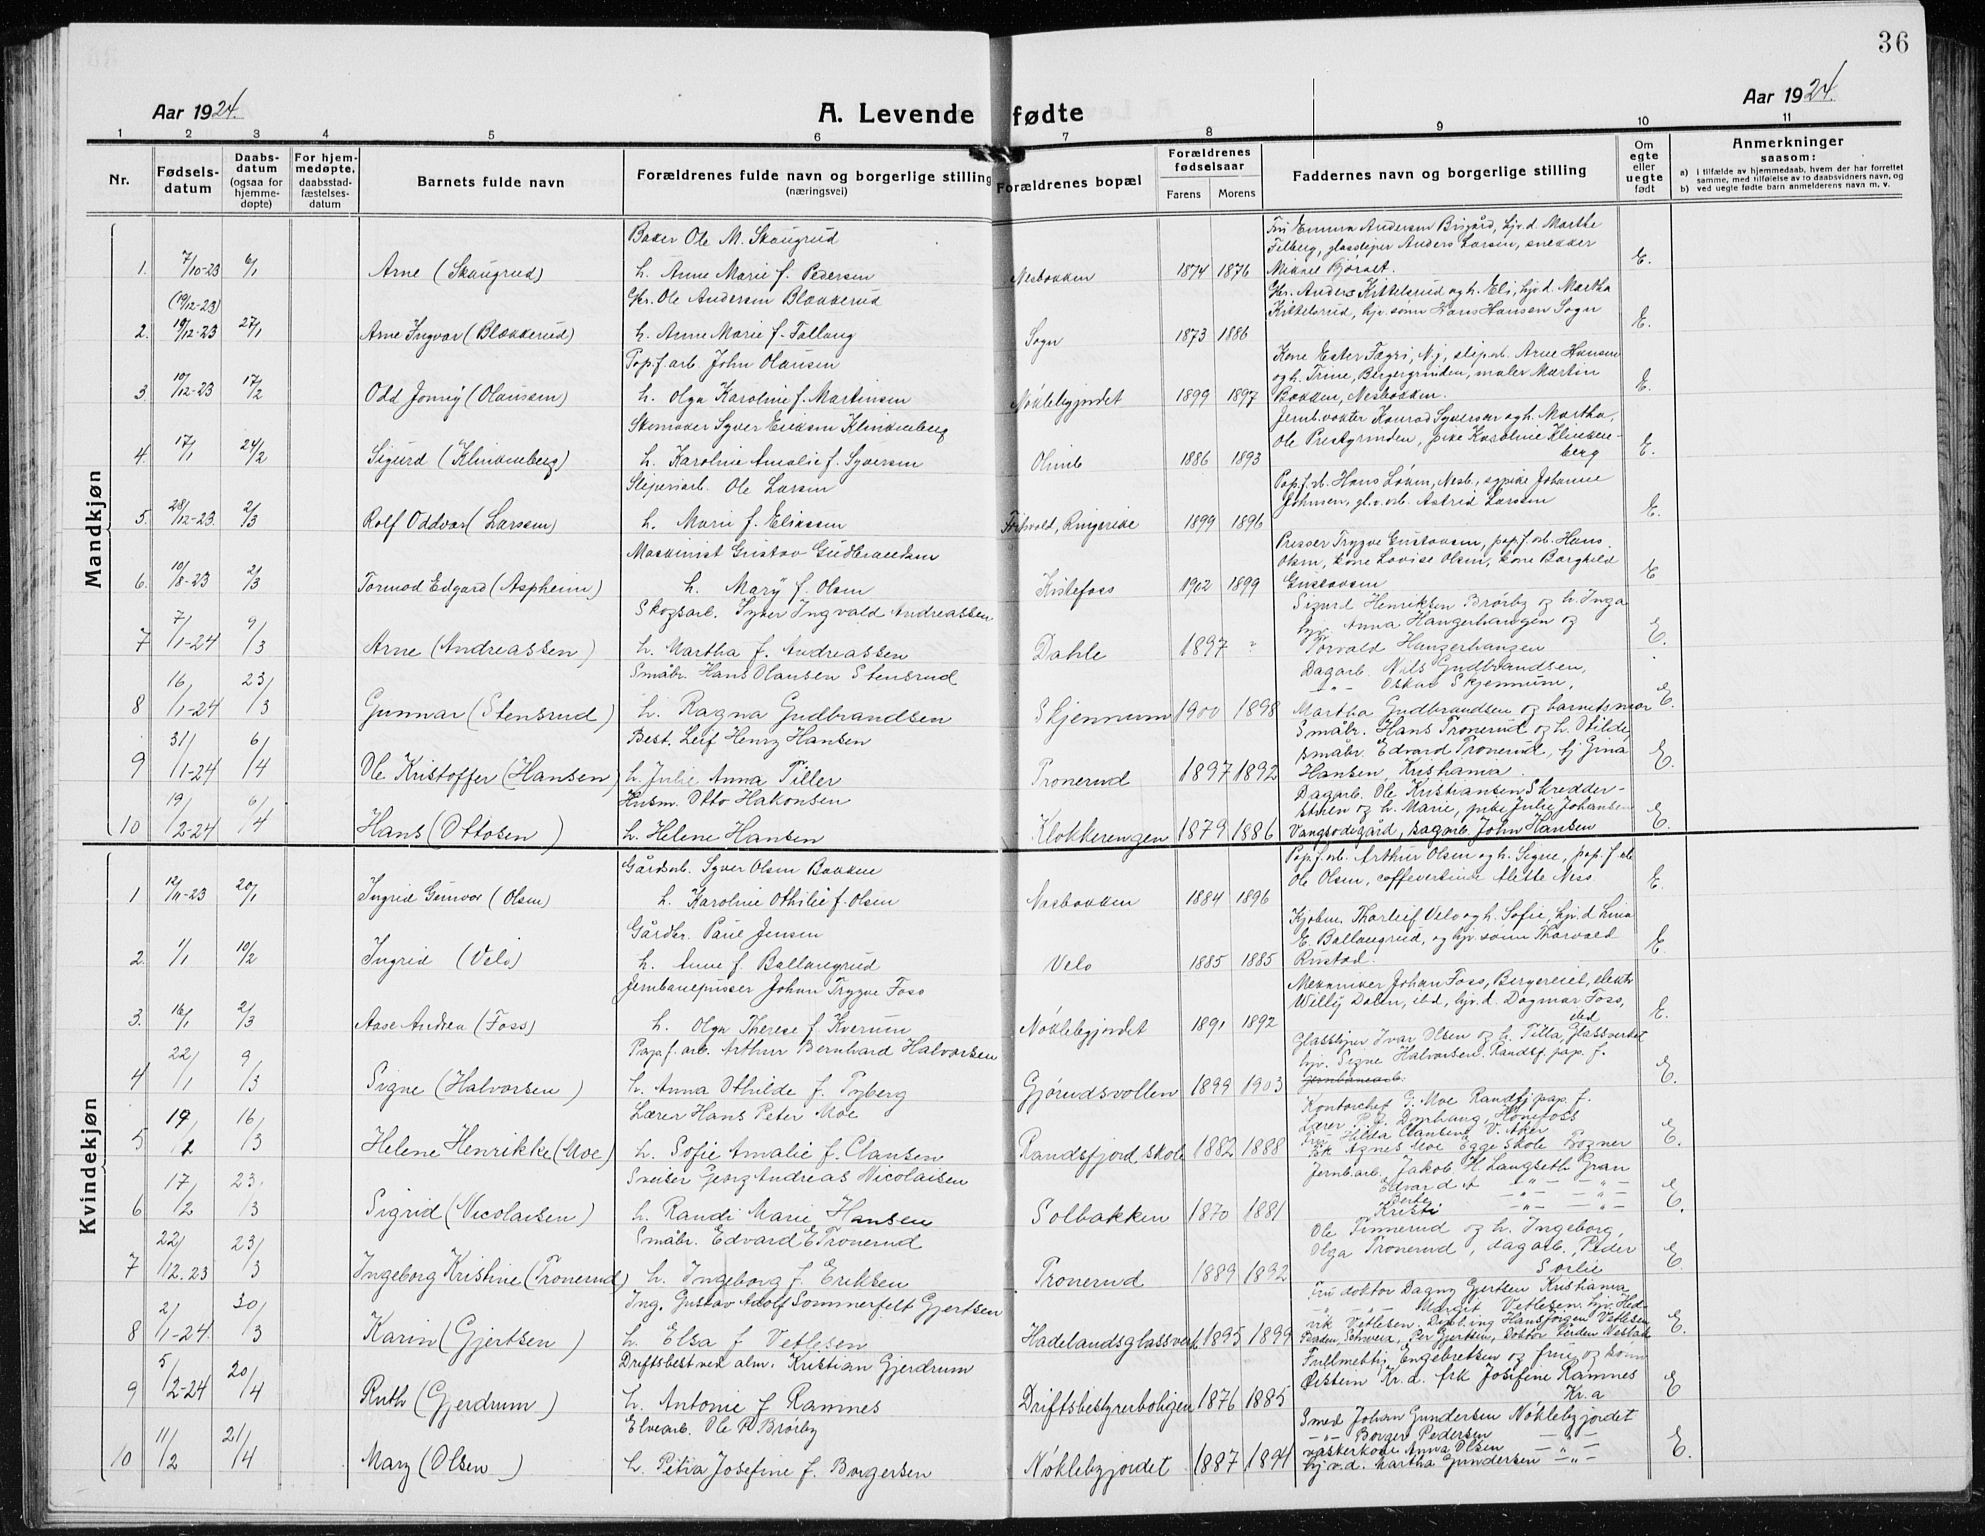 36
Aar 1924. A. Levende fødte Aar 1924.
1 2 3 4 5 6 7 8 9 10 11
Nr. Fødsels-datum Daabs-datum (ogsaa for hjemme-døpte) For hjem-medøpte, daabsstad-fæstelses-datum Barnets fulde navn Forældrenes fulde navn og borgerlige stilling (næringsvei) Forældrenes bopæl Forældrenes fødselsaar Farens Morens Faddernes navn og borgerlige stilling Om egte eller uegte født Anmerkninger saasom: a) i tilfælde av hjemmedaab, hvem der har forrettet samme, med tilføielse av to daabsvidners navn, og b) ved uegte fødte barn anmelderens navn m. v.
Mandkjøn
Baker Ole M. Skaugrud
Fru Emma Andersen Brigård, hjv.d. Marthe
Filberg, glassliper Anders Larsen, snekker
1. 7/10-23 6/1 Arne (Skaugrud) h. Anne Marie f. Pedersen Nesbakken 1874 1876 Mikael Bjørset. E.
(19/12-23) Gbr. Ole Andersen Blækkerud
Gbr. Anders Kittelsrud og h. Eli, hjv.d. Martha
Kittelsrud, hjv. sønn Hans Hansen Sogn
2. 19/12-23 27/1 Arne Ingvar (Blækkerud) h. Anne Marie f. Tallaug Sogn 1873 1886 E.
Pap.f.arb. John Olausen
Kone Ester Fægri, N.j., sliparb. Arne Hansen
og h. Trine, Bergergrinden, maler Martin
3. 10/12-23 17/2 Odd Jonny (Olaussen) h. Olga Karoline f. Martinsen Nøklebygjordet 1899 1897 Bakken, Nesbakken. E.
Skomaker Syver Eriksen Klinkenberg
Jernb.vokter Konrad Syversen og h. Martha,
Ole Prestgrinden, pike Karoline Klinken-
berg
4. 17/1 24/2 Sigurd (Klinkenberg) h. Karoline Amalie f. Syversen Olimb 1886 1893 E.
Sliperiarb. Ole Larsen
Pap.f.arb. Hans Løken, Nesb., sypike Johanne
Johnsen, gl.v.arb. Astrid Larssen
5. 28/12-23 2/3 Rolf Oddvar (Larssen) h. Marie f. Eliassen Ringerike 1899 1896 E.
Maskinist Gustav Gudbrandsen
Presser Trygve Gustavsen, pap.f.arb. Hans
Olsen, kone Lovise Olsen, kone Borghild
6. 10/8-23 2/3 Tormod Edgard (Aspheim) h. Mary f. Olsen Kistefoss 1902 1899 Gustavsen E
Skogsarb. Syver Ingvald Andreassen
Sigurd Henriksen Brørby og h. Inga
hjv. Anna Hangerhaugen og
7 7/1-24 9/3 Arne (Andreassen) h. Martha f. Andreassen Dahle 1897 " Torvald Hangerhaugen E.
Småbr. Hans Olausen Stensrud
Dagarb. Nils Gudbrandsen,
-"- Oskar Skjennum,
8 16/1-24 23/3 Gunnar (Stensrud) h. Ragna Gudbrandsen Skjennum 1900 1898 Martha Gudbrandsen og barnets mor E.
Best. Leif Henry Hansen
Småbr. Hans Tronerud og h. Otilde,
småbr. Edvard Tronerud, fj Gina
9 31/1-24 6/4 Ole Kristoffer (Hansen) h. Julie Anna Tiller Tronerud 1897 1892 Hansen, Kristiania. E.
Husm. Otto Hakonsen
Dagarb. Ole Kristiansen Skredder-
stuen og h. Marie, pike Julie Johansen
10 19/2-24 6/4 Hans (Ottosen) h. Helene Hansen Klokkerengen 1879 1886 Vangsodegård, dagarb. John Hansen E.
Kvindekjøn
Gårdarb. Syver Olsen Bakken
Pap.f.arb. Arthur Olsen og h. Signe, pap.f.arb.
1 12/11-23 20/1 Ingrid Gunvor (Olsen) h. Karoline Othilie f. Olsen Nesbakken 1884 1896 Ole Olsen, caffevertinde Alette Ness E.
Gårdbr. Paul Jensen
Kjøbm. Thorleif Velo og h. Sofie, hjv.d Lina
E. Ballangrud, og hjv. sønn Thorvald
2. 1/1 10/2 Ingrid (Velo) h. Anne f. Ballangrud Velo 1885 1885 Rustad. E.
Jernbanepusser Johan Trygve Foss
Mekaniker Johan Foss, Bergereiet, elektr.
Willy Dalen, ibd, hjv.d. Dagmar Foss,
ibd
3. 16/1 2/3 Aase Andrea (Foss) h. Olga Therese f. Kverum Nøklebygjordet 1891 1892 E.
Pap.f.arb. Arthur Bernhard Halvorsen
Glassliper Ivar Olsen og h. Tilla, Glassverket
hjv. Signe Halvorsen. Randsf. pap. f.
4 22/1 9/3 Signe (Halvorsen) h. Anna Othilde f. Nyberg Gjørudsvollen 1899 1903 E.
Lærer Hans Peter Moe
Kontorchef G. Moe Randsfj pap. f.
Lærer P. J. Dyrhaug, Hønefoss
Fru Hilda Clausen V. Aker
5 19/2 16/3 Helene Henrikke (Moe) h. Sofie Amalie f. Clausen Randsfjord skole 1882 1888 Frk Agnes Moe Egge skole E.
Sveiser Georg Andreas Nicolaisen
Jernb.arb. Jakob H. Langseth Gran
Edvard A -"- -"-
Berte
6 17/2 23/3 Sigrid (Nicolaisen) h. Randi Marie Hansen Solbakken 1870 1881 Kristi -"- -"- E.
Småbr. Edvard E Tronerud
Ole Tinnerud og h. Ingeborg,
Olga Tronerud, dagarb. Peder
Sorlie
7 22/12.23 23/3 Ingeborg Kristine (Tronerud) h. Ingeborg f. Eriksen Tronerud 1889 1892 E.
Ing. Gustav Adolf Sommerfelt Gjertsen
Fru doktor Dagny Gjertsen Kristiania
-"- -"- Margit Vetlesen. hjv. Hed-
vik Vetlesen. Dipl.ing Hansjørgen Vetlesen
8 2/1-24. 30/3 Karin (Gjertsen) h. Elsa f Vetlesen Hadelandsglassverk 1895 1899 Baden, Schweiz, Per Gjertsen, Doktor E.
Driftsbest ved alm. Kristian Gjerdrum
Fullmektig Engebretsen og frue og sønn
Øistein Kr.a. frk Josefine Ramnes
Kr.a
9 5/2-24 20/4 Ruth (Gjerdrum) h. Antonie f Ramnes Driftsbestyrerboligen 1876 1885 E
Elvearb. Ole P. Brørby
Smed Johan Gundersen Nøklebygjordet
-"- Borger Pedersen -"-
vaskerkone Anna Olsen -"-
10 11/2 21/4 Mary (Olsen) h. Petra Josefine f. Borgersen Nøklebygjordet 1887 1894 hjv.d. Martha Gundersen -"- E.